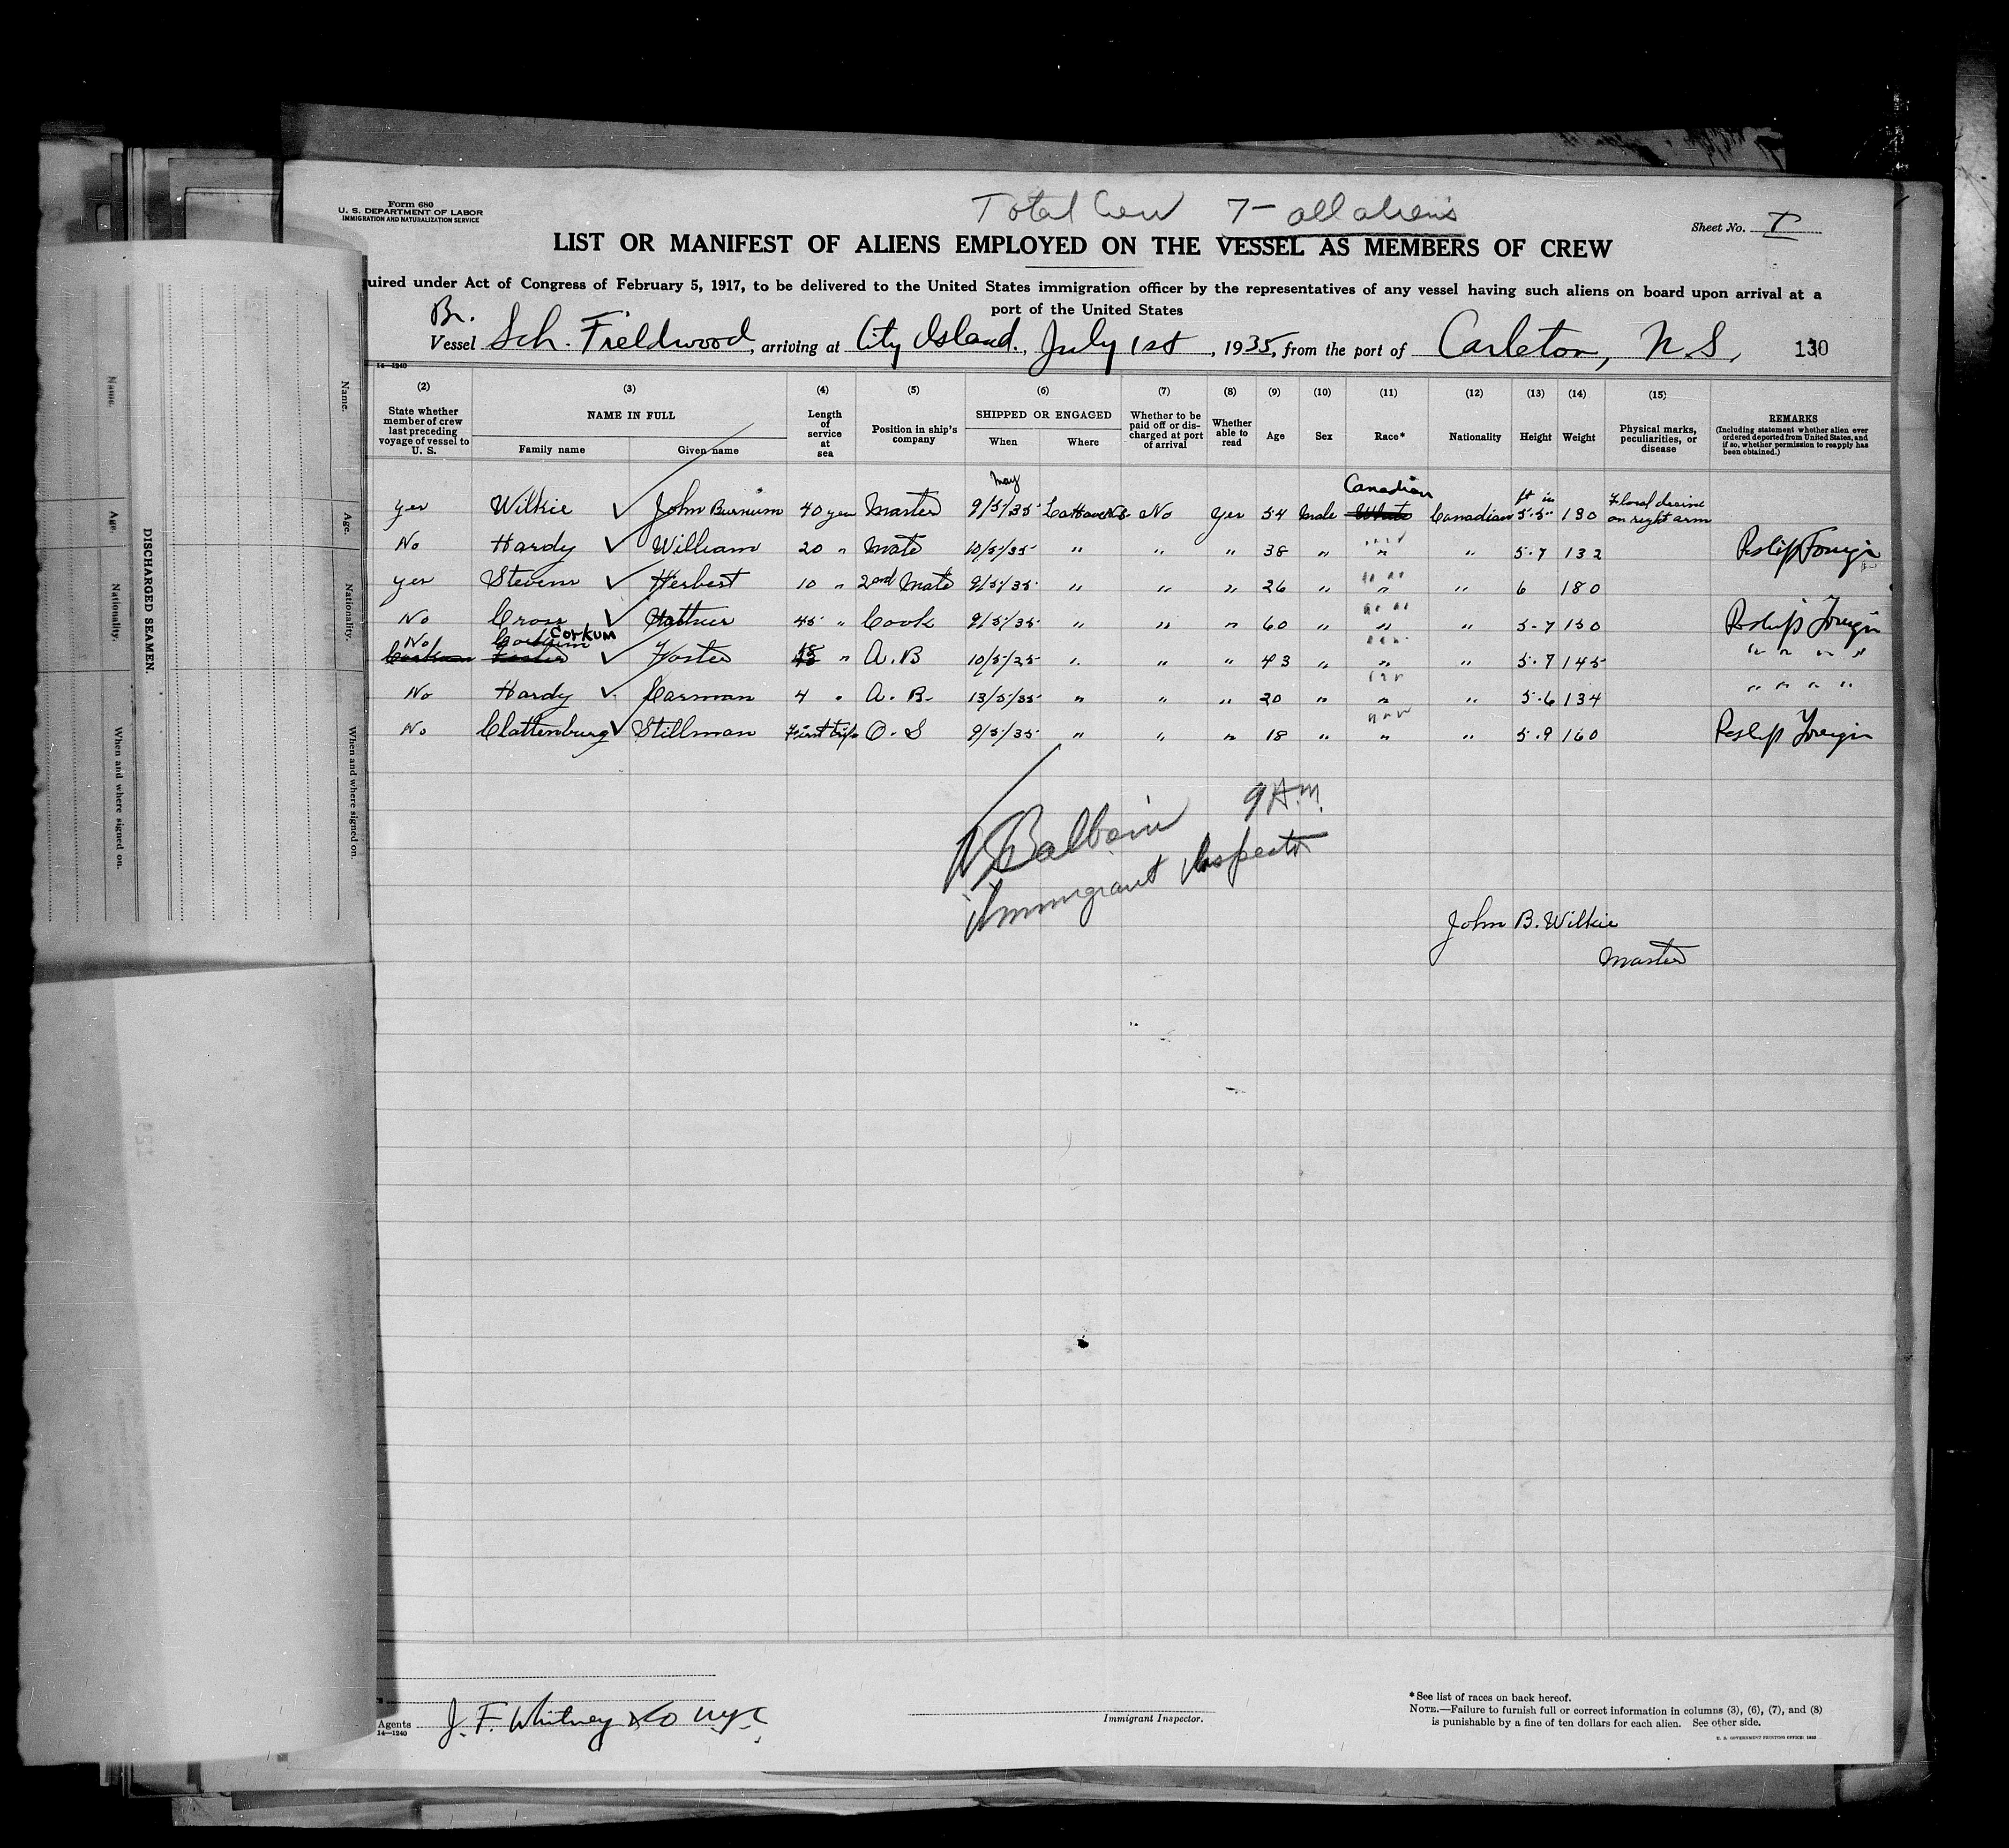 Form 680
U. S. DEPARTMENT OF LABOR
IMMIGRATION AND NATURALIZATION SERVICE
Total Crew 7 - all aliens
Sheet No. I
LIST OR MANIFEST OF ALIENS EMPLOYED ON THE VESSEL AS MEMBERS OF CREW
uired under Act of Congress of February 5, 1917, to be delivered to the United States immigration officer by the representatives of any vessel having such aliens on board upon arrival at a
port of the United States
Br.
Vessel Sch. Fieldwood, arriving at City Island, July 1st, 1935, from the port of Carleton, N.S. 130
14—1240
(2) (3) (4) (5) (6) (7) (8) (9) (10) (11) (12) (13) (14) (15)
State whether member of crew last preceding voyage of vessel to U. S.
NAME IN FULL
Family name Given name
Length of service at sea
Position in ship's company
SHIPPED OR ENGAGED
When Where
Whether to be paid off or discharged at port of arrival
Whether able to read
Age Sex Race* Nationality Height Weight
Physical marks, peculiarities, or disease
REMARKS
(Including statement whether alien ever ordered deported from United States, and if so, whether permission to reapply has been obtained.)
May
Canadian ft in
yes Wilkie ✓ John Burnum 40 year Master 9/5/35 LaHave NS No yes 54 Male White Canadian 5-5 130 Floral on right arm
No Hardy ✓ William 20 " Mate 10/5/35 " " " 38 " " " 5-7 132
yes Stevens ✓ Herbert 10 " 2nd Mate 9/5/35 " " " 26 " " " 6 180
No Cross ✓ 45 " Cook 9/5/35 " " " 60 " " " 5-7 150
No Corkum CORKUM
Corkum Foster ✓ Foster 18 " A.B 10/5/25 " " " 43 " " " 5-7 145 " " " "
No Hardy ✓ Carman 4 " A.B. 13/5/35 " " " 20 " " " 5-6 134 " " " "
No Clattenburg ✓ Stillman First trip O.S 9/5/35 " " " 18 " " " 5-9 160
9 A.M.
Balboin
Immigrant Inspector
John B. Wilkie
Master
Name.
Age.
Nationality.
When and where signed on.
DISCHARGED SEAMEN.
Name.
Age.
Nationality.
When and where signed on.
Agents J. F. Whitney & Co NYC
14—1240
Immigrant Inspector.
*See list of races on back hereof.
NOTE.—Failure to furnish full or correct information in columns (3), (6), (7), and (8)
is punishable by a fine of ten dollars for each alien. See other side.